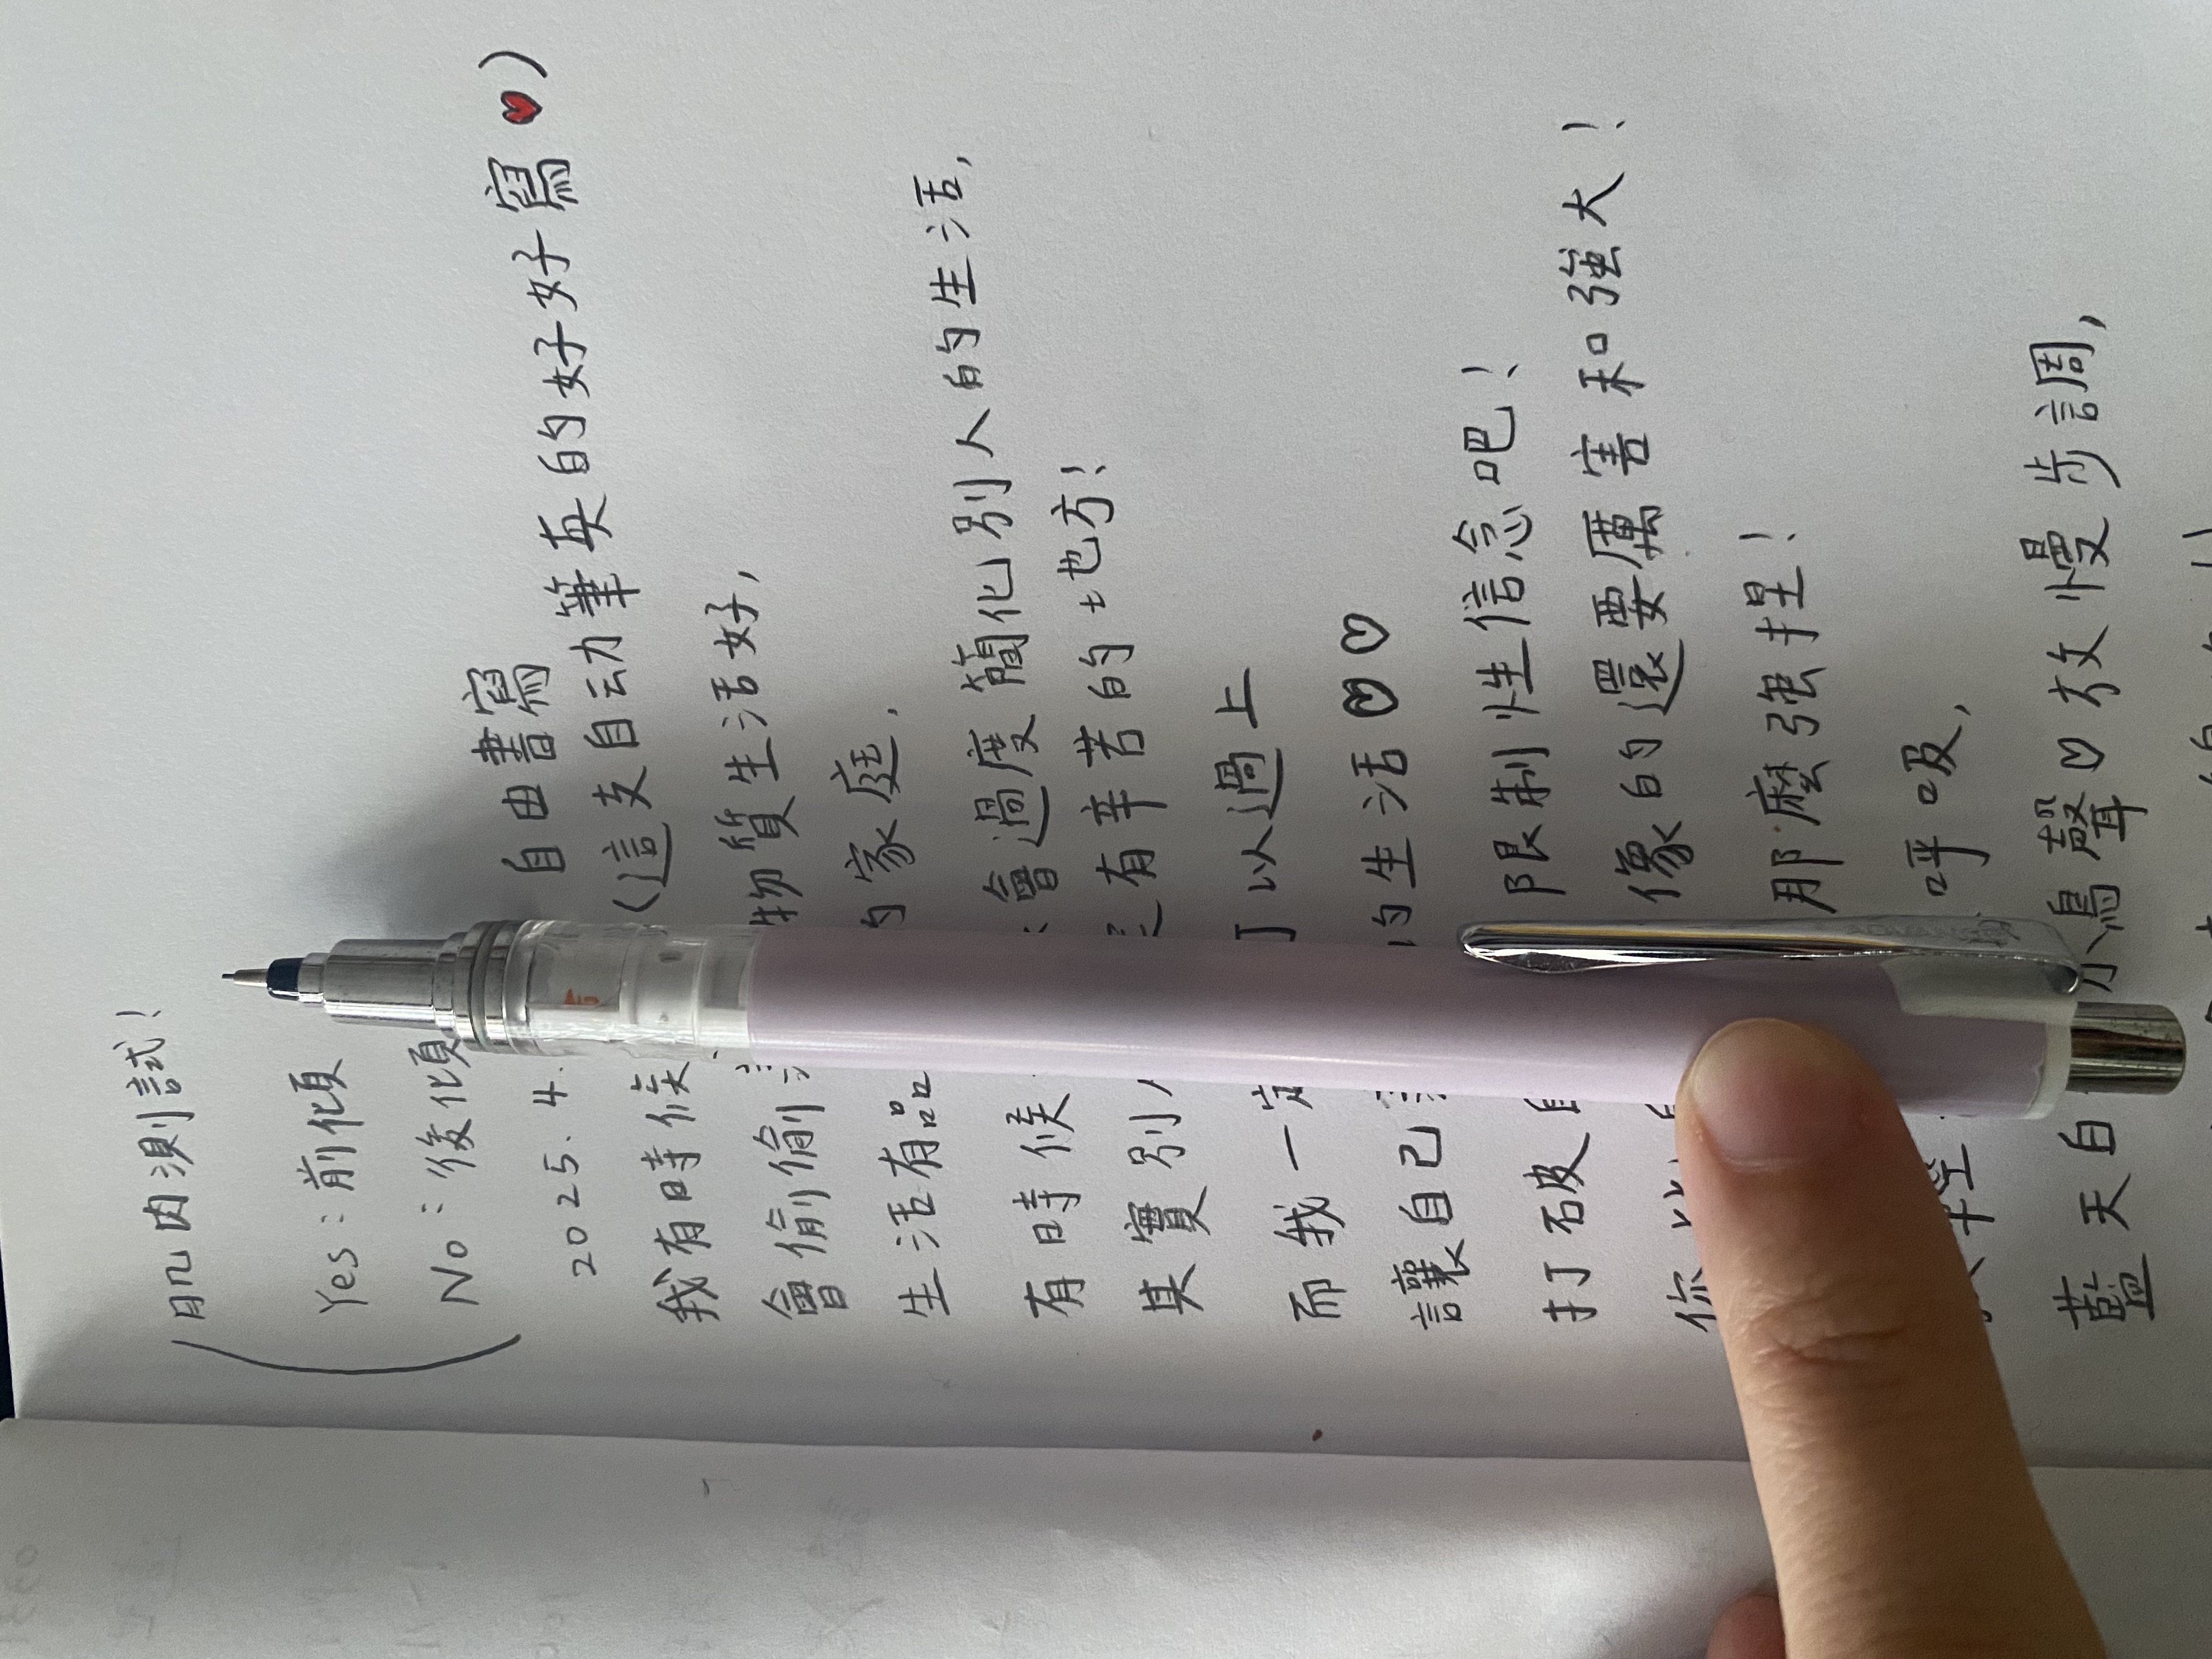 肌肉測試！
Yes：前傾
No：後傾
2025.4. 自由書寫
(這支自动筆真的好好寫♥)
我有時候 物質生活好，
會偷偷 的家庭.
生活有品
有時候 會過度簡化別人的生活，
其實別 有辛苦的地方！
而我一定 可以過上
讓自己 的生活♡♡
打破自 限制性信念吧！
你 像的還要厲害和強大！
那麼強悍！
呼吸，
藍天白 小鳥聲♡放慢步調，